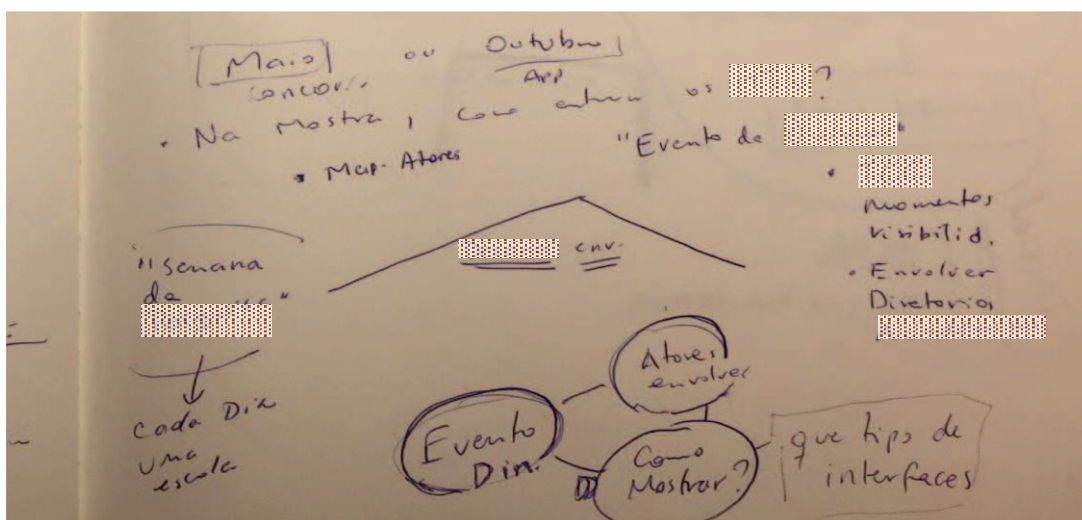 Maio ou Outubro
App
• Na Mostra, como entram os ?
• Map. Atores
"Evento de "
•
momentos
visibilid.
• Envolver
Diretoria
env.
"Semana
de "
cada Dia
uma
escola
Atores
envolver
Evento
Din.
Como
Mostrar?
que tipo de
interfaces